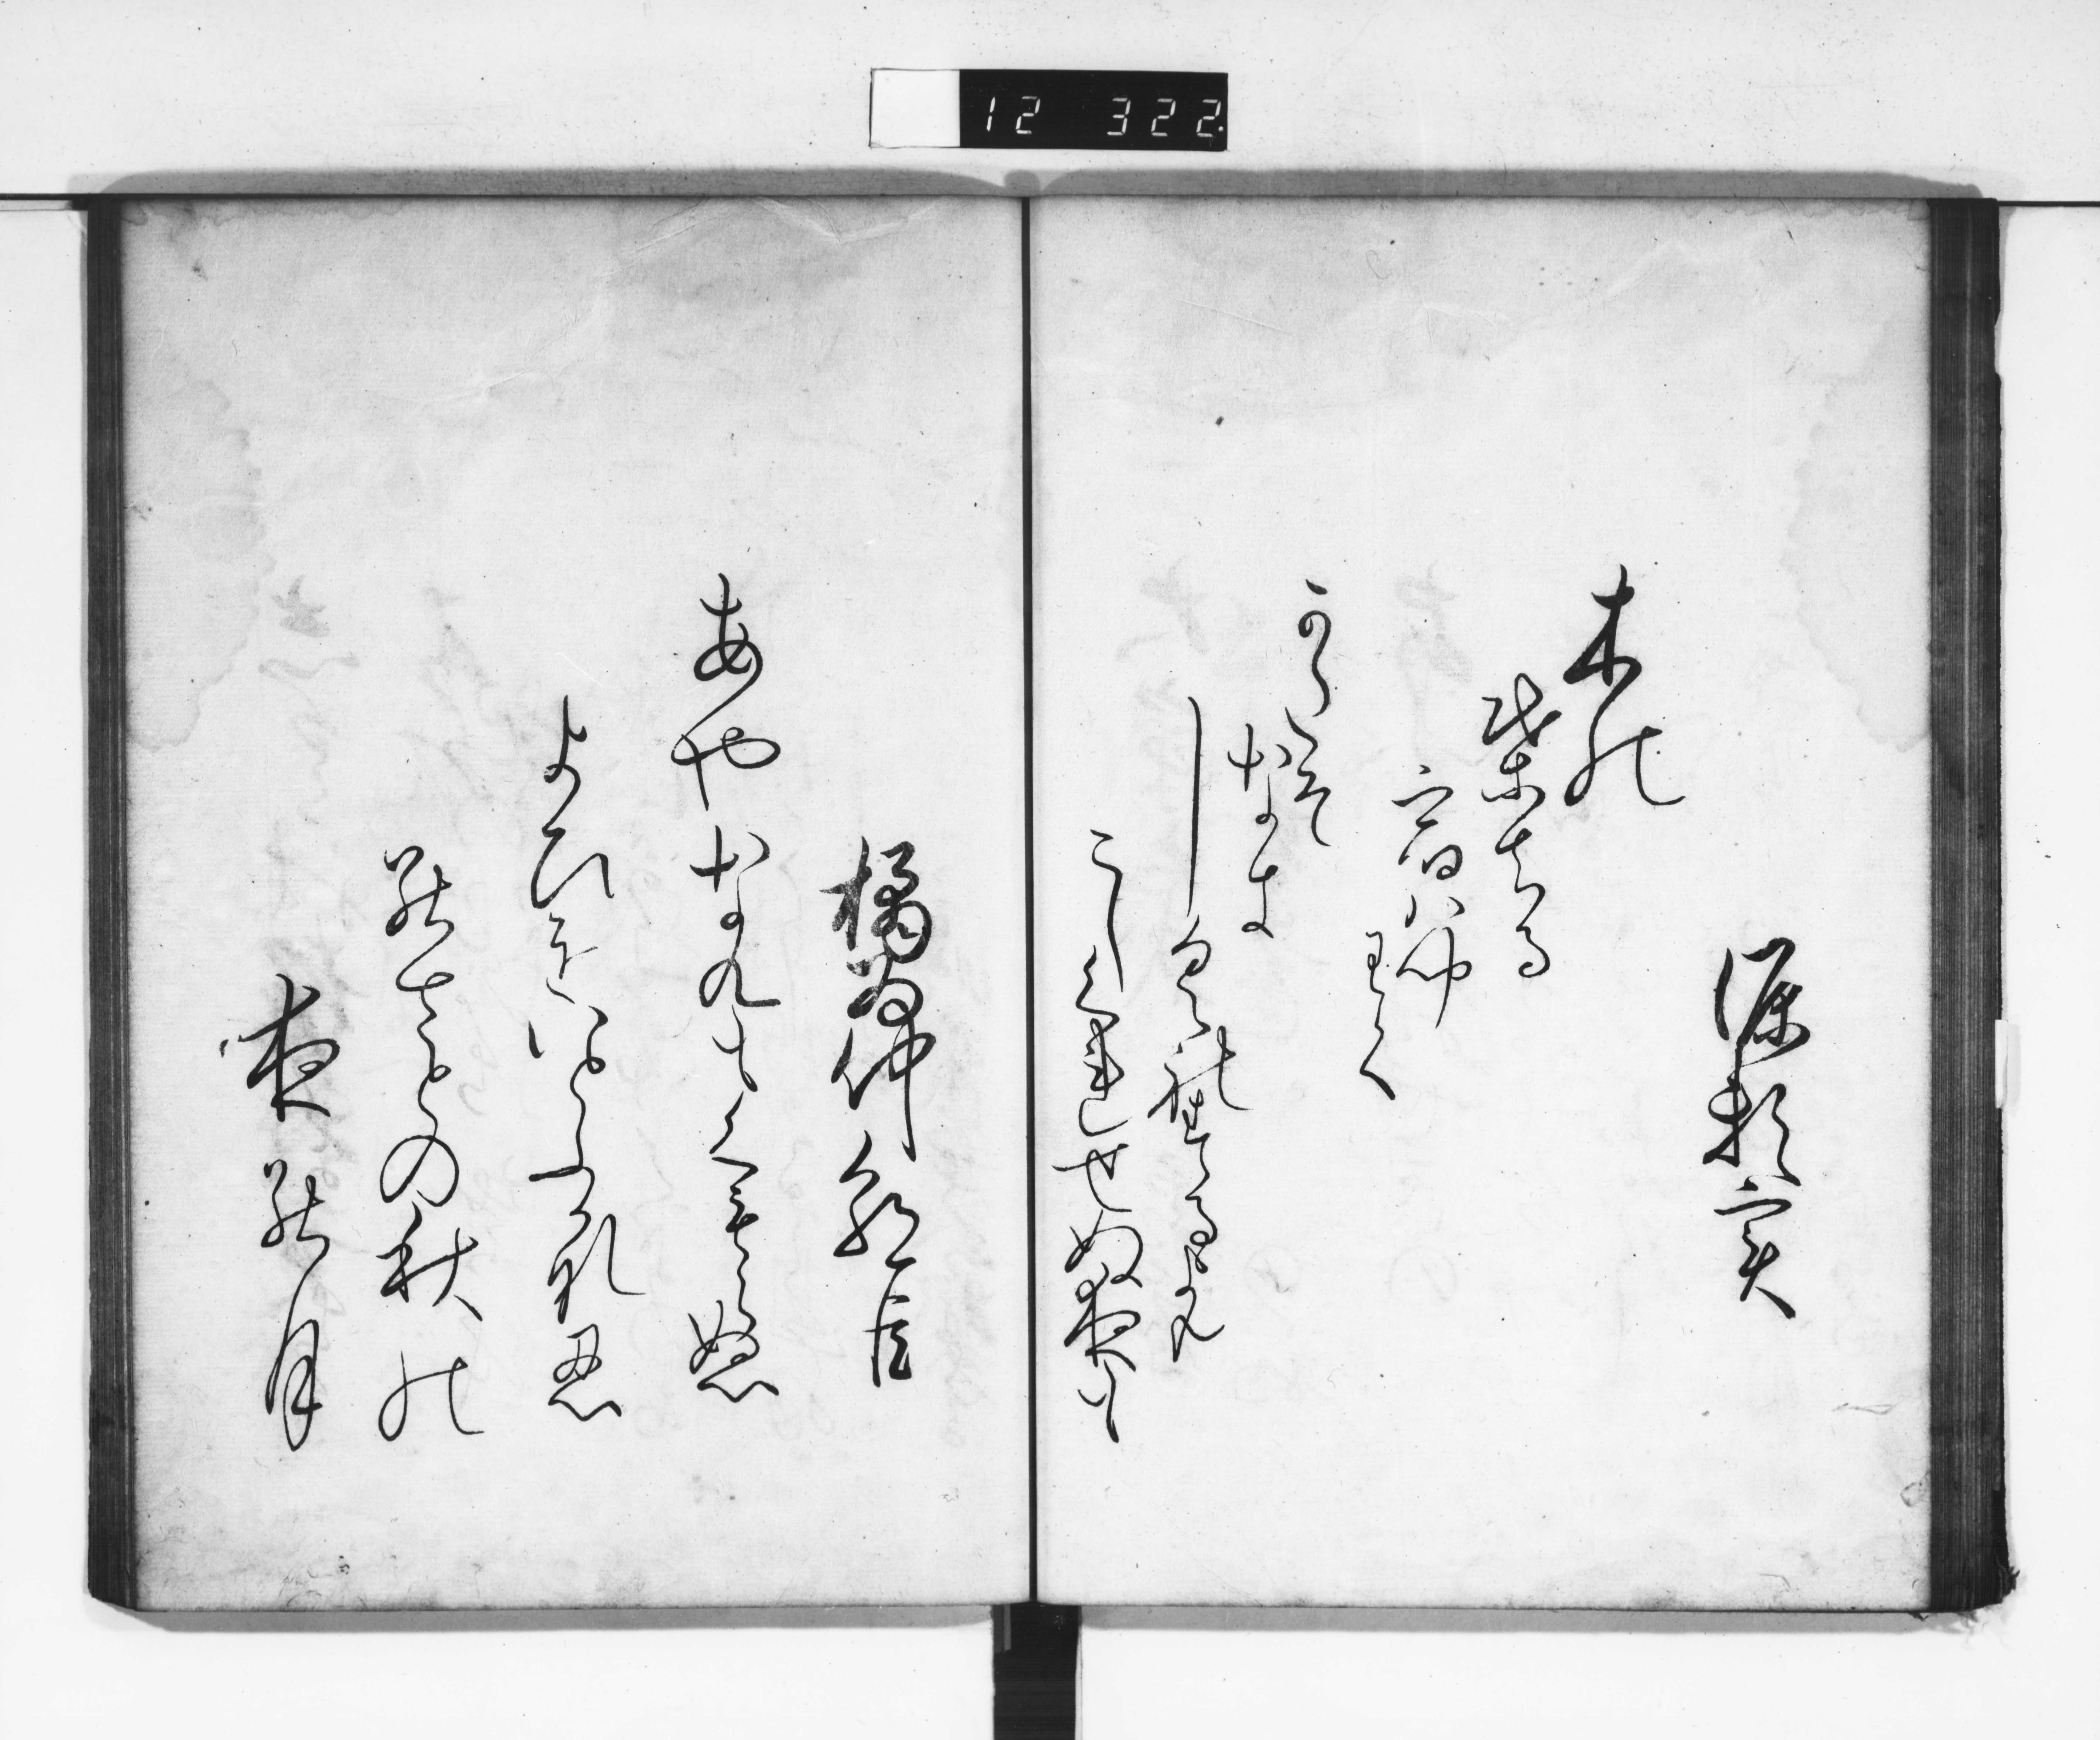 12 322
源頼実
木の
葉ちる
宿はきゝ
わく
かたそ
なき
しくれする夜も
しくれせぬ夜も
橘為仲朝臣
あやなくもくもらぬ
よひをいとふかな忍
のさとの秋の
夜の月